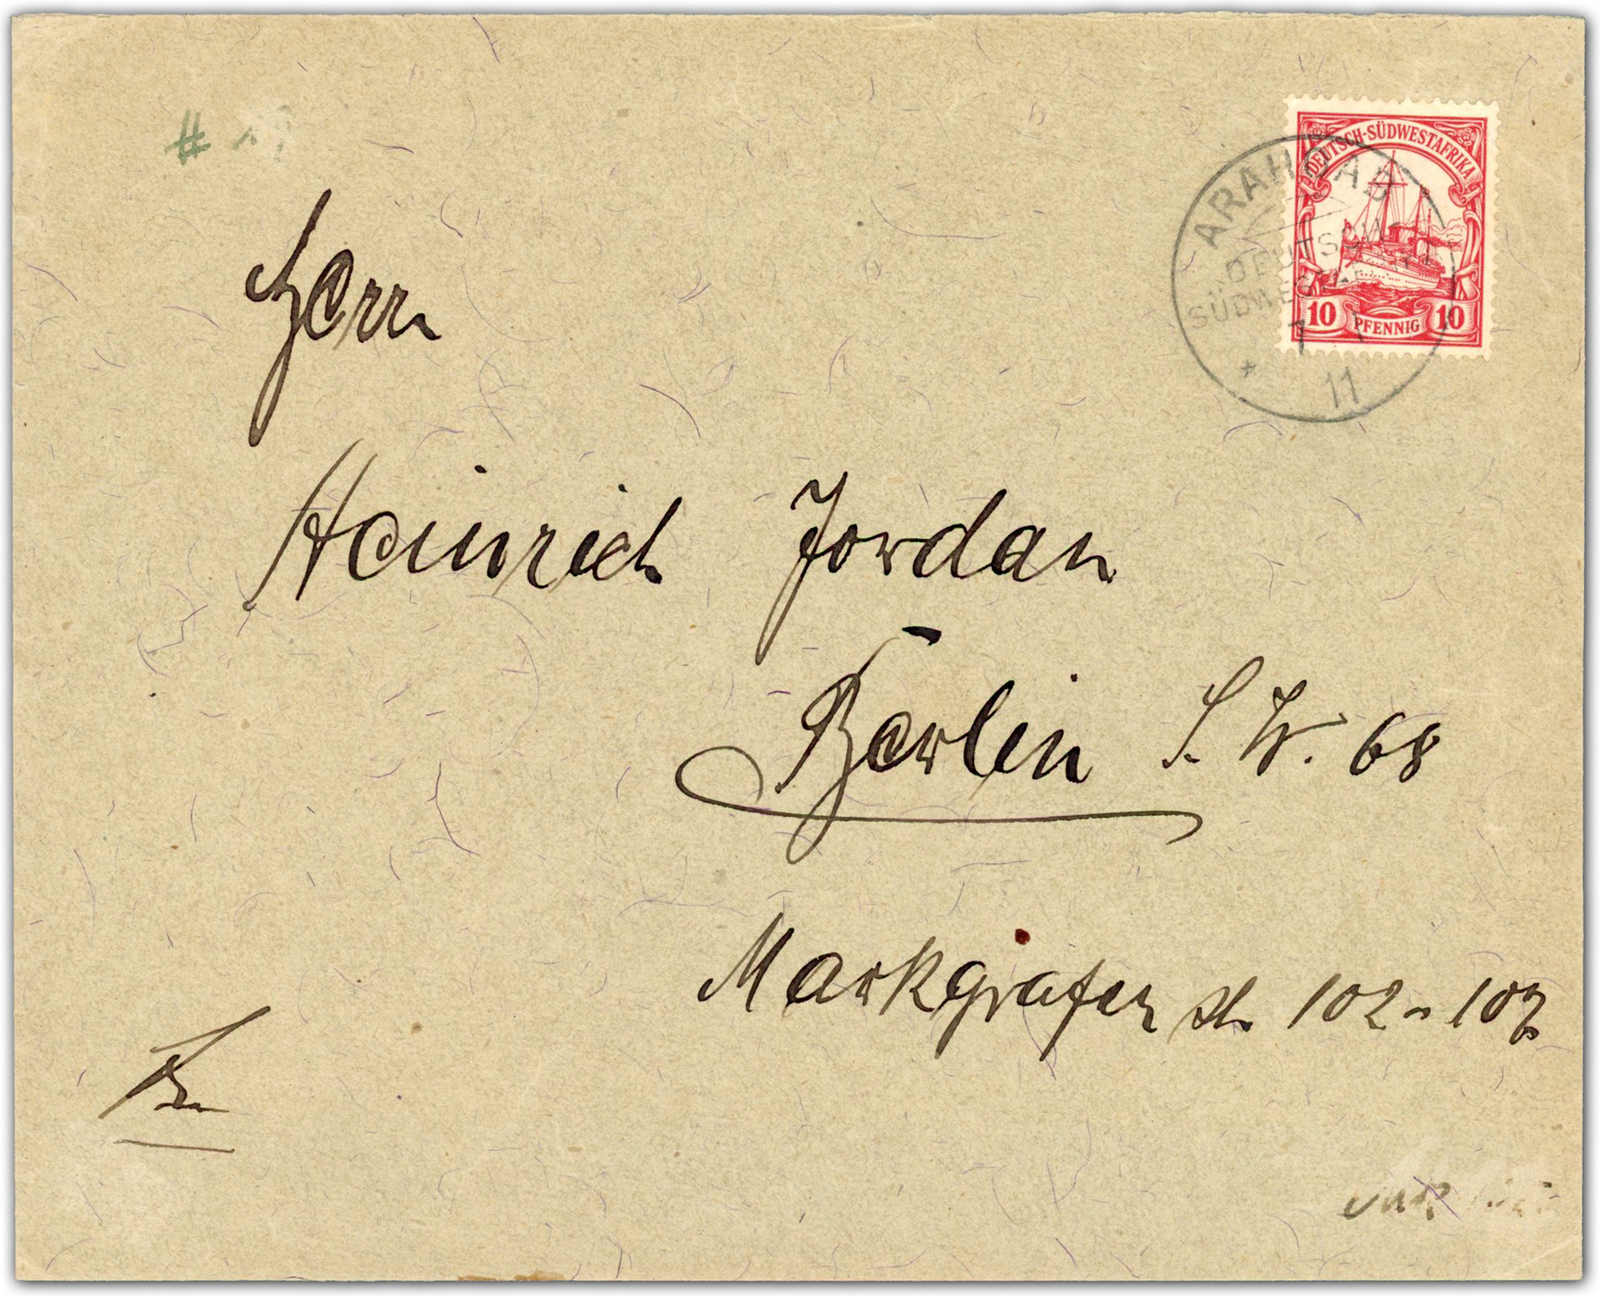 #
DEUTSCH-SÜDWESTAFRIKA
10 PFENNIG 10
ARAHOAB
DEUTSCH-
SÜDWESTAFRIKA
* 11
Herr
Heinrich Jordan
Berlin S. W. 68
Markgrafen str. 102-107